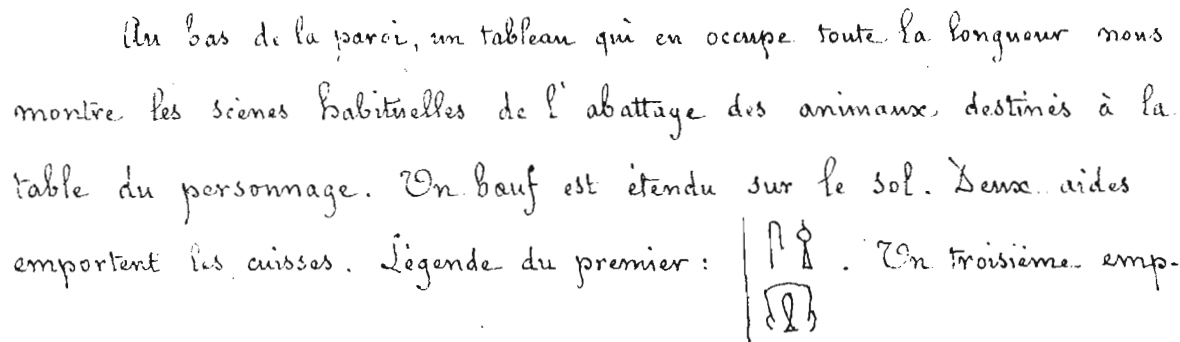 Au bas de la paroi, un tableau qui en occupe toute la longueur nous
montre les scènes habituelles de l'abattage des animaux destinés à la
table du personnage. Un bœuf est étendu sur le sol. Deux aides
emportent les cuisses. Légende du premier : . Un troisième emp-